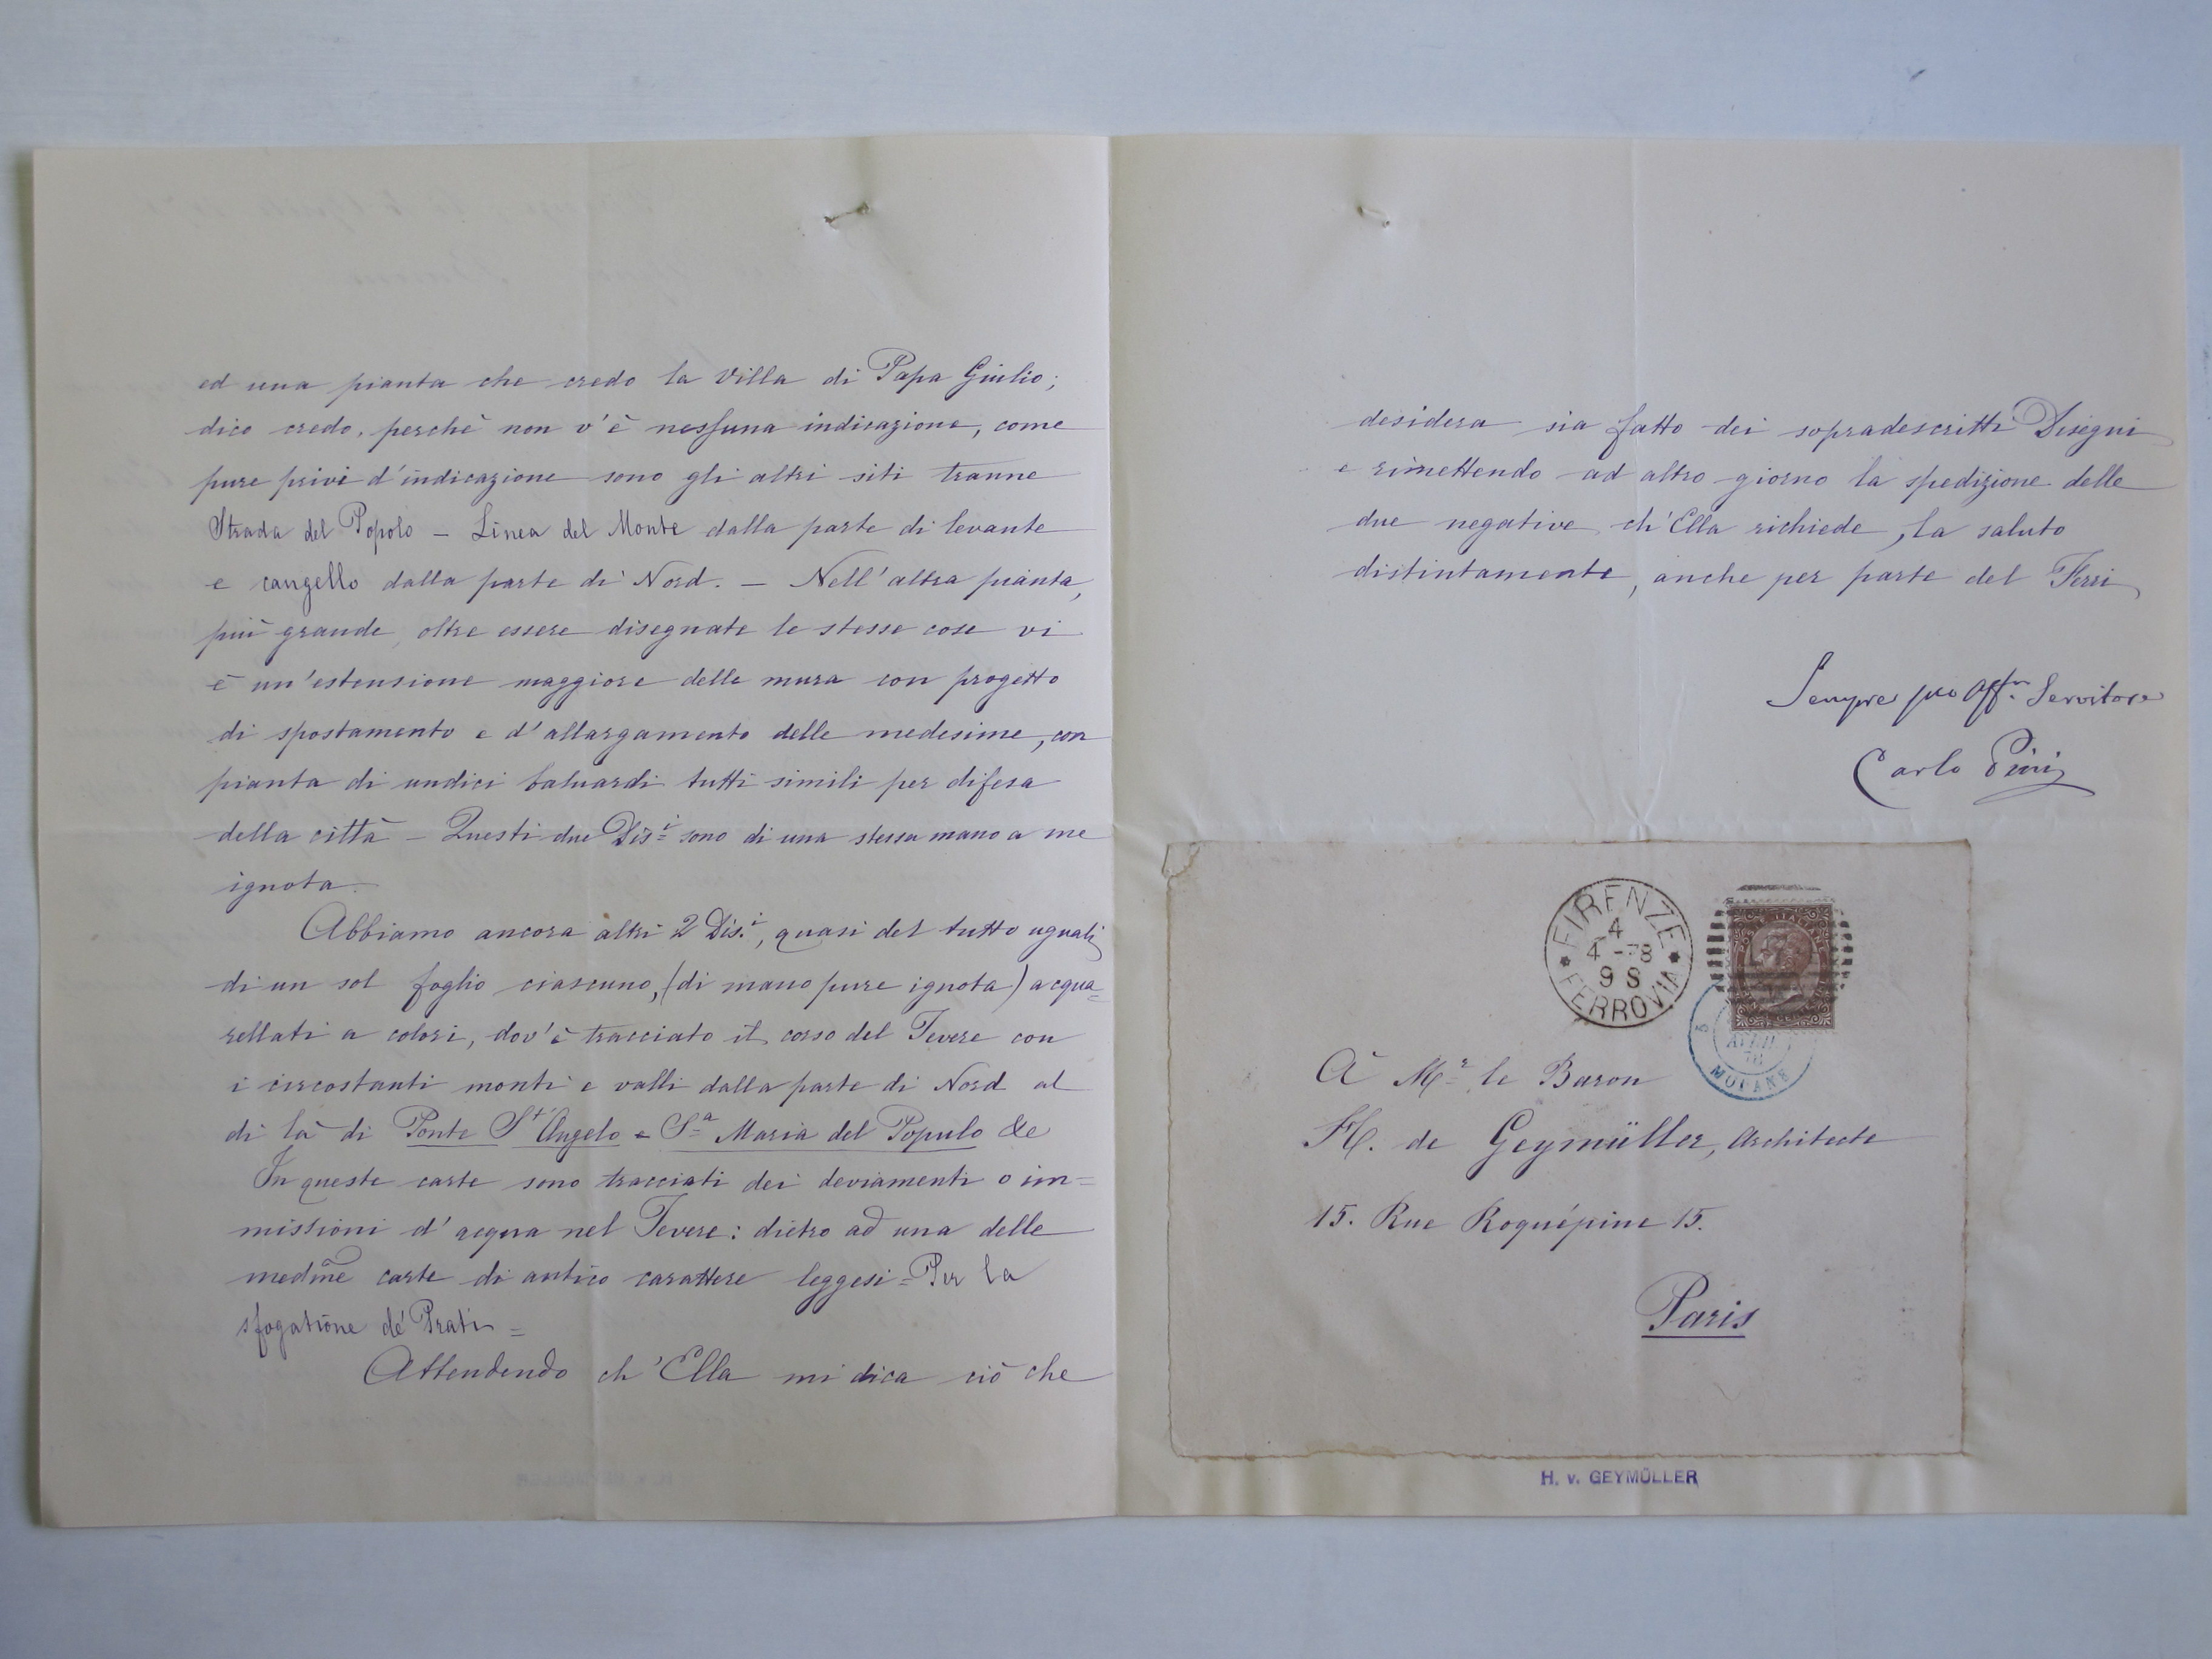 ed una pianta che credo la Villa di Papa Giulio;
dico credo, perchè non v'è nessuna indicazione, come
pure privi d'indicazione sono gli altri siti tranne
Strada del Popolo – Linea del Monte dalla parte di levante
e cangello dalla parte di Nord. – Nell'altra pianta,
più grande, oltre essere disegnate le stesse cose vi
è un'estensione maggiore delle mura con progetto
di spostamento e d'allargamento delle medesime, con
pianta di undici baluardi tutti simili per difesa
della città – Questi due Dis.i sono di una stessa mano a me
ignota.
Abbiamo ancora altri 2 Dis.i, quasi del tutto uguali
di un sol foglio ciascuno, (di mano pure ignota) acqua=
rellati a colori, dov'è tracciato il corso del Tevere con
i circostanti monti e valli dalla parte di Nord al
di là di Ponte St Angelo e S.a Maria del Populo &c
In queste carte sono tracciati dei deviamenti o im=
missioni d'acqua nel Tevere: dietro ad una delle
medme carte di antico carattere leggesi = Per la
sfogatione de' Prati =
Attendendo ch'Ella mi dica ciò che
desidera sia fatto dei sopradescritti Disegni
e rimettendo ad altro giorno la spedizione delle
due negative ch'Ella richiede, la saluto
distintamente, anche per parte del Ferri
Sempre suo Aff.mo Servitore
Carlo Pini
FIRENZE
4
4 - 78
9 S
FERROVIA
À Mr. le Baron
H. de Geymüller, Architecte
15. Rue Roquépine 15.
Paris
H. v. GEYMÜLLER